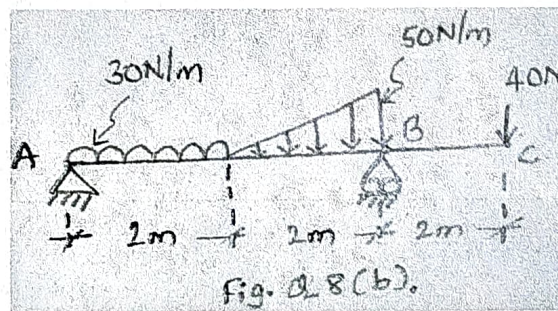 50N/m
30N/m
40N
A
B
C
2m
2m
2m
Fig. Q 8 (b).